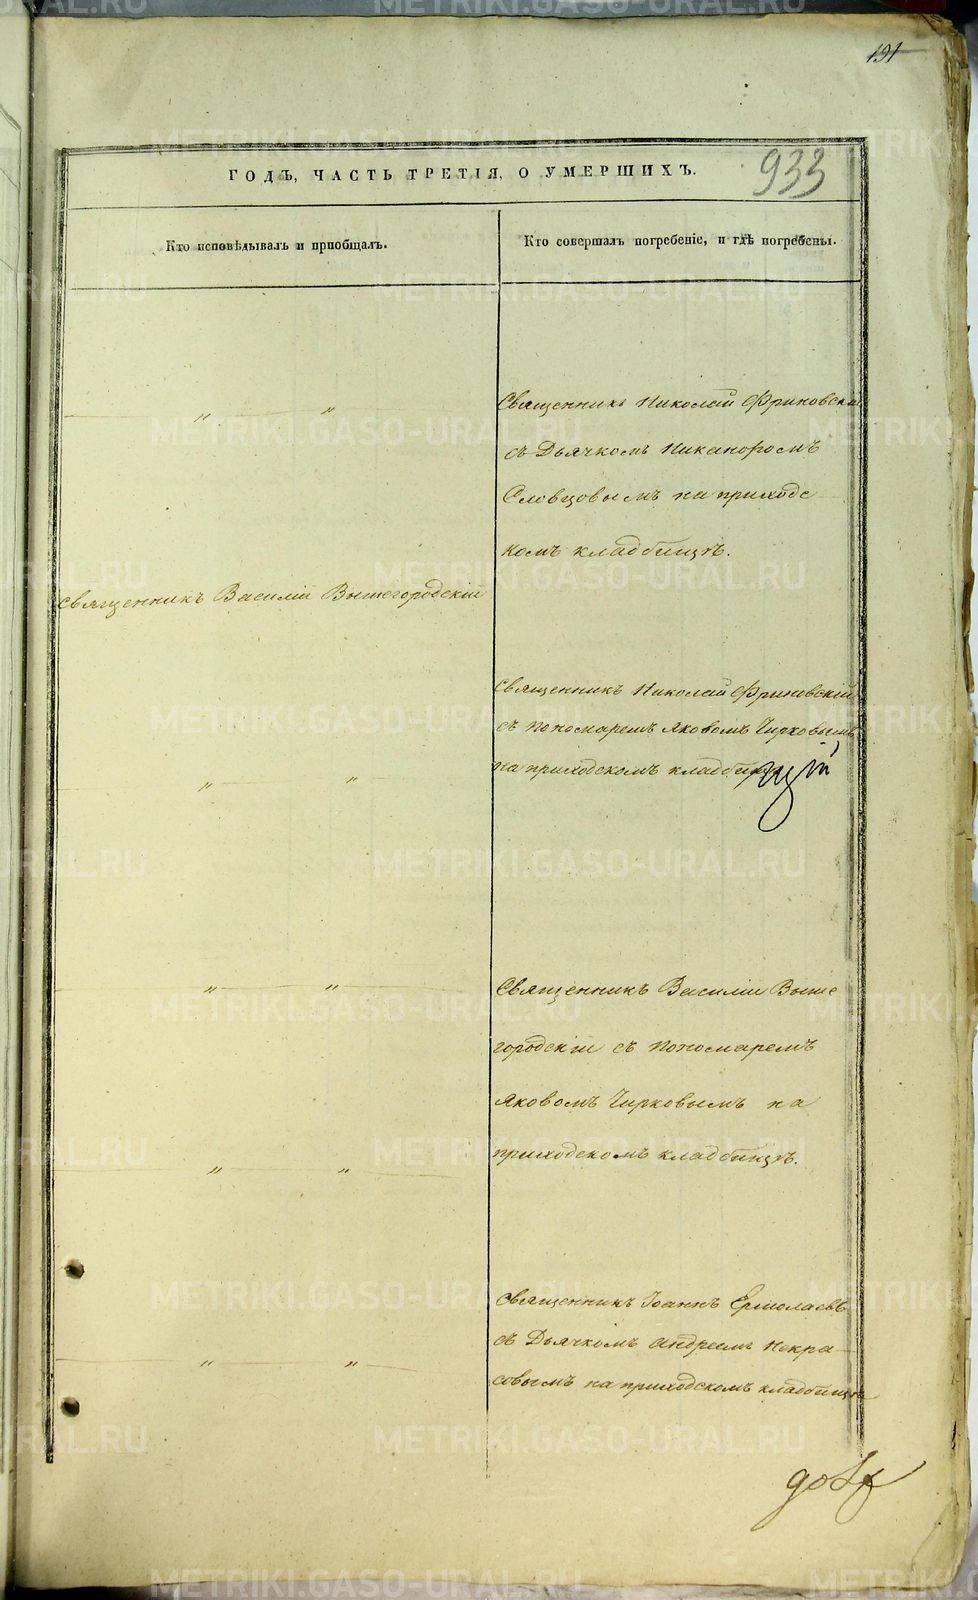 191
933
ГОДЪ, ЧАСТЬ ТРЕТІЯ, О УМЕРШИХЪ.
Кто исповѣдывалъ и пріобщалъ.
Кто совершалъ погребеніе, и гдѣ погребены.
„ „
Священникъ Николай Фриновскій
съ Дьячкомъ Никаноромъ
Словцовымъ на приходс
комъ кладбищѣ.
Священникъ Василій Вышегородскій
Священникъ Николай Фриновскій
съ Пономаремъ Яковомъ Чирковымъ
на приходскомъ кладбищѣ
„ „
„ „
Священникъ Василій Выше
городскій съ Пономаремъ
Яковомъ Чирковымъ на
приходскомъ кладбищѣ.
„ „
Священникъ Іоаннъ Ермолаевъ
съ Дьячкомъ Андреемъ Некра
совымъ на приходскомъ кладбищѣ
„ „
METRIKI.GASO-URAL.RU